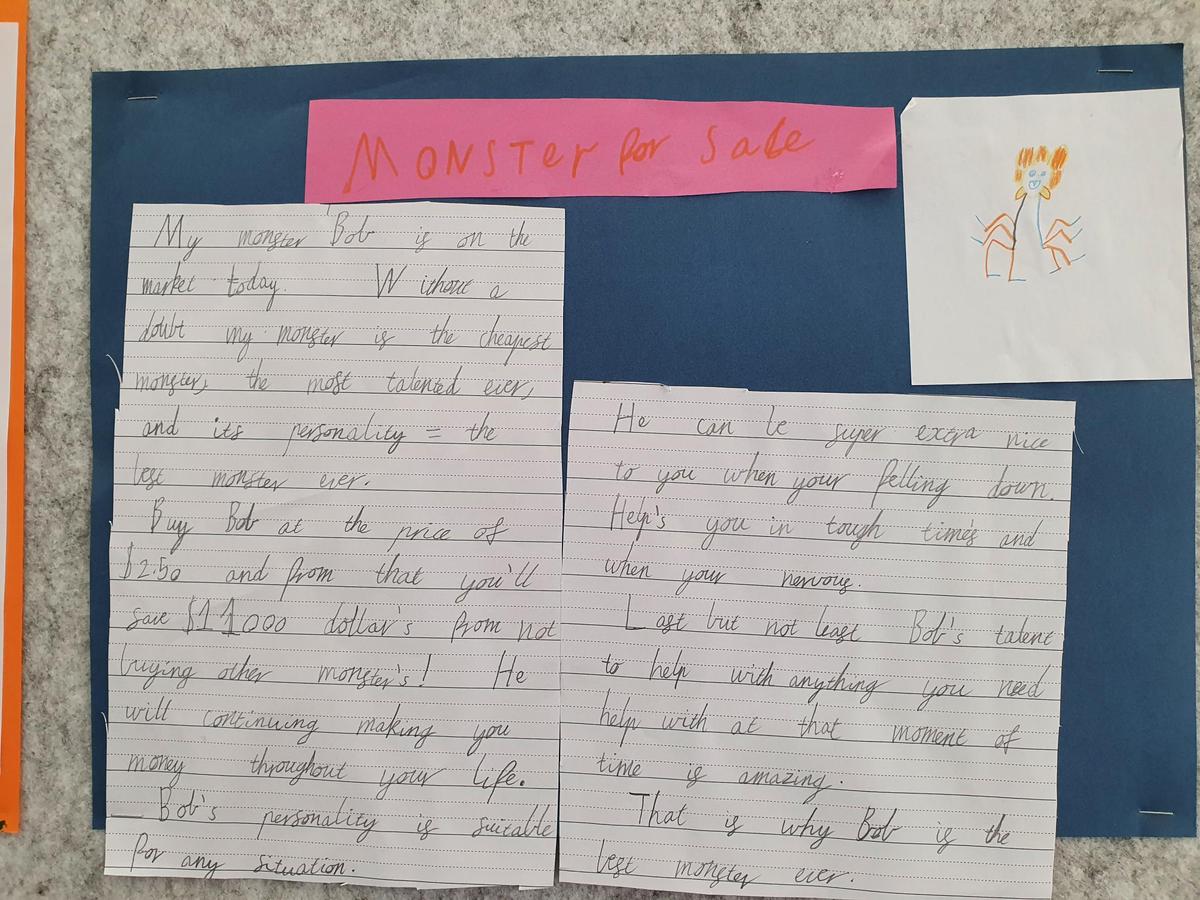 MONSTer for Sale
My monster Bob is on the
market today. Without a
doubt my monster is the cheapest
monster, the most talented ever,
and its personality = the
best monster ever.
Buy Bob at the price of
$2.50 and from that you'll
save $11000 dollar's from not
buying other monster's! He
will continuing making you
money throughout your life.
Bob's personality is suitable
for any situation.
He can be super extra nice
to you when your felling down.
Help's you in tough time's and
when your nervous.
Last but not least Bob's talent
to help with anything you need
help with at that moment of
time is amazing.
That is why Bob is the
best monster ever.